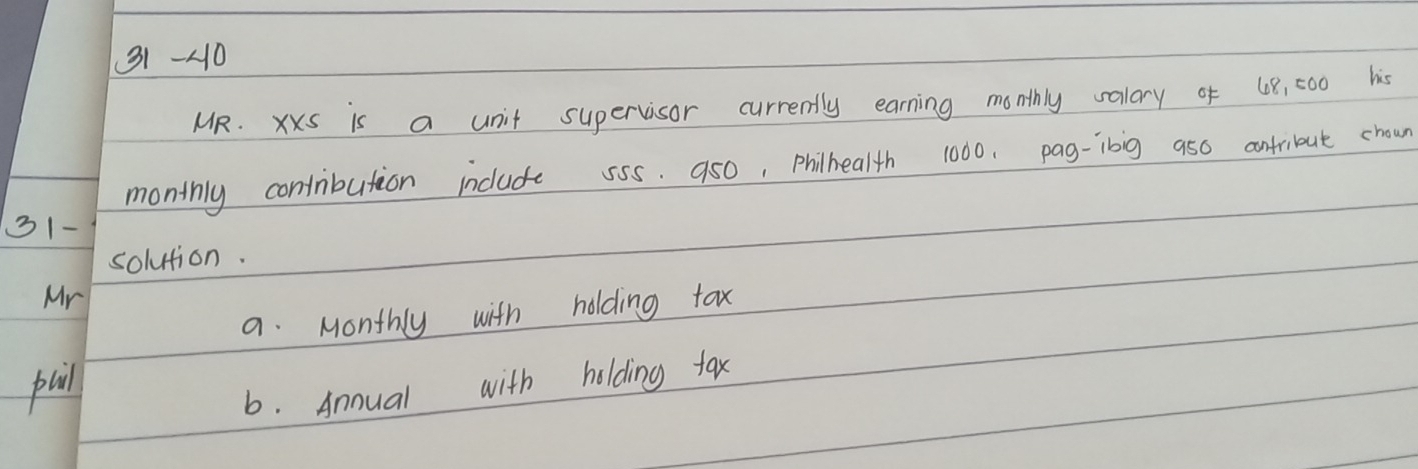 31 - 40
MR. XXS is a unit supervisor currently earning monthly salary of 68,500 his
monthly contribution include SSS. 950, Philhealth 1000, pag-ibig 950 contribut chown
31-
solution.
Mr
a. Monthly with holding tax
phil
b. Annual with holding tax